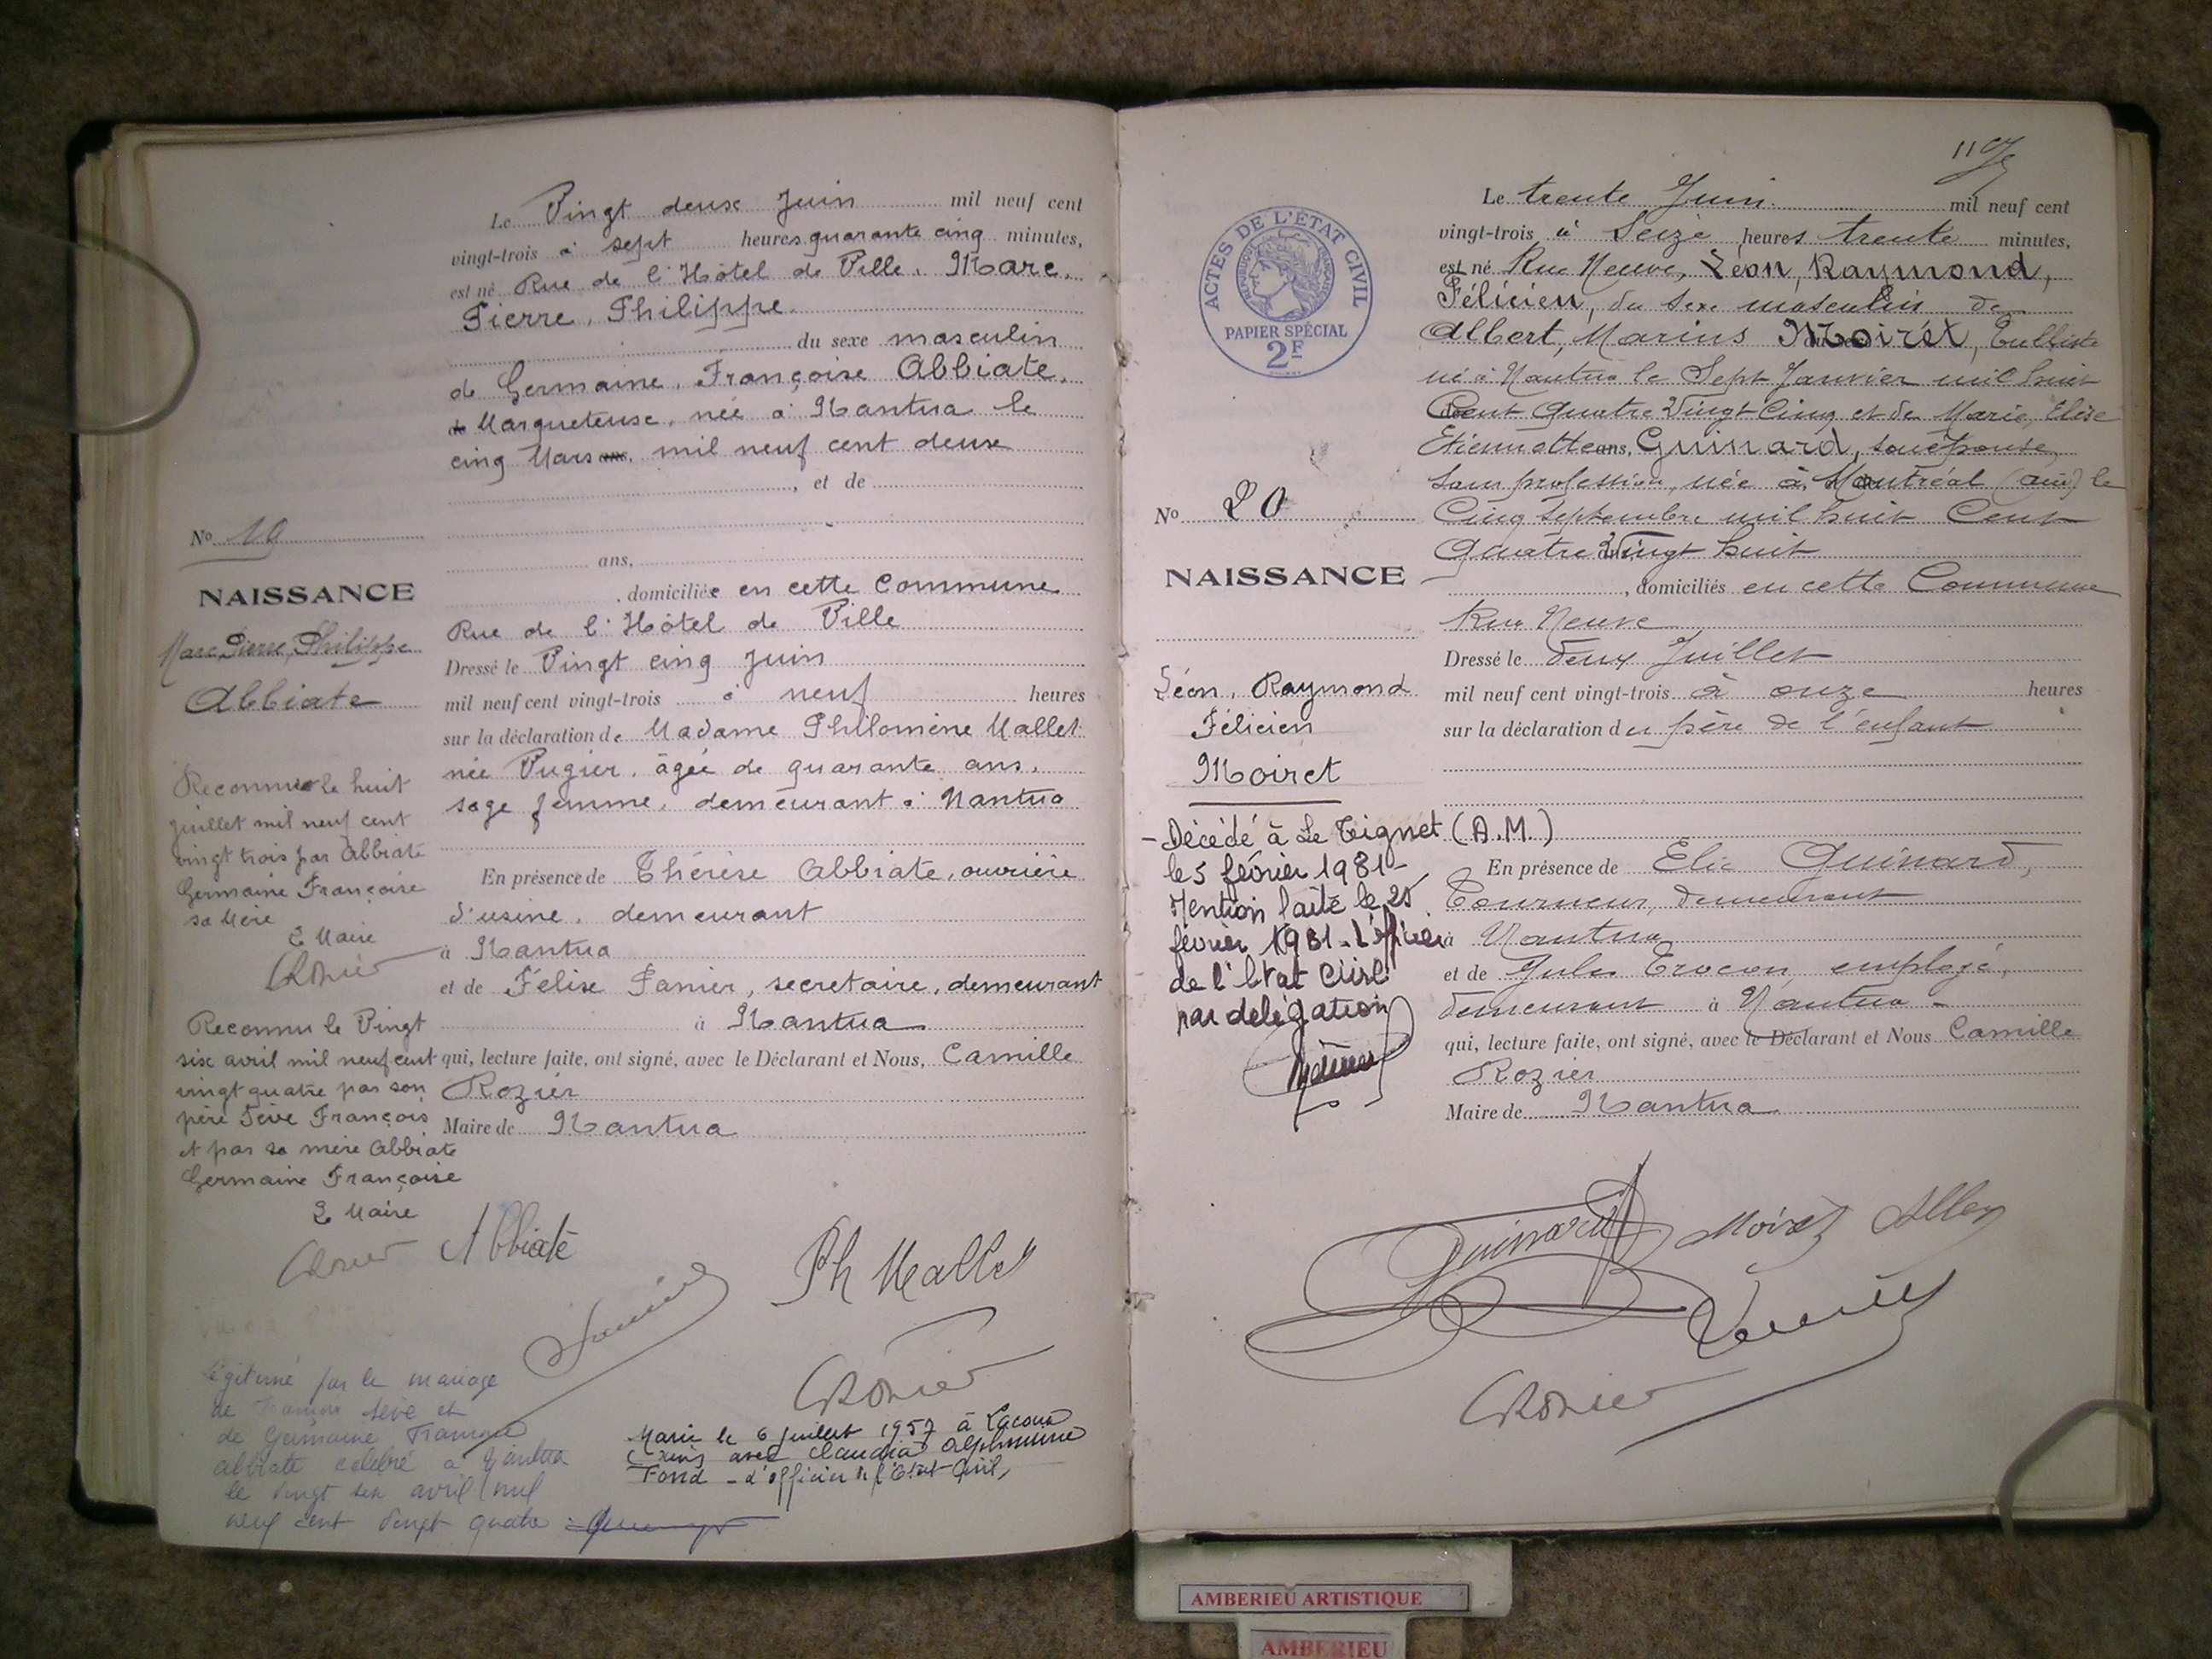 Le Vingt deux Juin mil neuf cent
vingt-trois à sept heures quarante cinq minutes,
est né Rue de l'Hôtel de Ville, Marc,
Pierre, Philippe
du sexe masculin
de Germaine, Françoise Abbiate,
Marqueteuse, née à Nantua le
cinq Mars ans, mil neuf cent deux
, et de
No 19
ans,
NAISSANCE
, domiciliée en cette Commune
Marc, Pierre, Philippe
Abbiate
Rue de l'Hôtel de Ville
Dressé le Vingt cinq Juin
mil neuf cent vingt-trois à neuf heures
sur la déclaration de Madame Philomène Mallet
née Pugier, âgée de quarante ans,
sage femme, demeurant à Nantua
En présence de Thérèse Abbiate, ouvrière
d'usine, demeurant
à Nantua
et de Félix Panier, secrétaire, demeurant
à Nantua
qui, lecture faite, ont signé, avec le Déclarant et Nous, Camille
Rozier
Maire de Nantua
Reconnu le huit
juillet mil neuf cent
vingt trois par Abbiate
Germaine Françoise
sa Mère
Le Maire
CRozier
Reconnu le Vingt
six avril mil neuf cent
vingt quatre par son
père Sève François
et par sa mère Abbiate
Germaine Françoise
Le Maire
CRozier
Abbiate
Ph Mallet
Panier
CRozier
légitimé par le mariage
de François Sève et
de Germaine Françoise
Abbiate célébré à Nantua
le vingt six avril mil
neuf cent vingt quatre
Marié le 6 juillet 1957 à Lacoux
(Ain) avec Claudia Alphonsine
Fond - L'officier de l'Etat Civil,
119
ACTES DE L'ÉTAT CIVIL
RÉPUBLIQUE FRANÇAISE
PAPIER SPÉCIAL
2F
Le trente Juin mil neuf cent
vingt-trois à Seize heures trente minutes,
est né Rue Neuve, Léon, Raymond,
Félicien, du sexe masculin de
Albert, Marius Moiret, Tulliste
né à Nantua le Sept Janvier mil huit
Cent Quatre Vingt Cinq et de Marie, Elise
Etiennette ans, Guinard, son épouse,
sans profession, née à Montréal (Ain) le
Cinq Septembre mil huit Cent
Quatre Vingt huit
No 20
NAISSANCE
, domiciliés en cette Commune
Rue Neuve
Dressé le deux Juillet
mil neuf cent vingt-trois à onze heures
sur la déclaration du père de l'enfant
Léon, Raymond
Félicien
Moiret
- Décédé à Le Tignet (A.M.)
le 5 février 1981 -
Mention faite le 25
février 1981 - L'officier
de l'Etat Civil
par délégation
En présence de Elie Guinard,
Tourneur, demeurant
à Nantua
et de Jules Erocon, employé,
demeurant à Nantua -
qui, lecture faite, ont signé, avec le Déclarant et Nous Camille
Rozier
Maire de Nantua
Guinard Moiret Albert
CRozier
AMBERIEU ARTISTIQUE
AMBERIEU